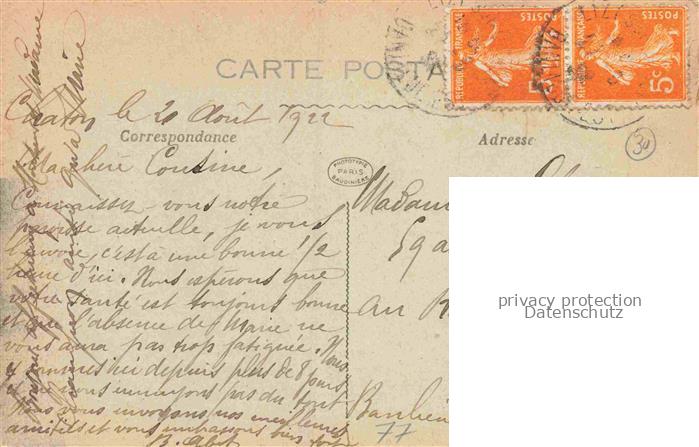 CARTE POSTA
Chatou le 20 Août 1922
Correspondance
Adresse
Ma chère Cousine,
Connaissez-vous notre
paroisse actuelle, je vous
l'avoue, c'est à une bonne 1/2
heure d'ici. Nous espérons que
votre santé est toujours bonne
et que l'absence de Marie ne
vous aura pas trop fatiguée. Nous
sommes ici depuis plus de 8 jours
et ne nous ennuyons pas du tout
Nous vous envoyons nos meilleures
amitiés et vous embrassons bien
PHOTOTYPIE
PARIS
BAUDINIÈRE
Madam
Banlieu
77
30
POSTES
REPUBLIQUE FRANÇAISE
5c
POSTES
REPUBLIQUE FRANÇAISE
5c
privacy protection
Datenschutz